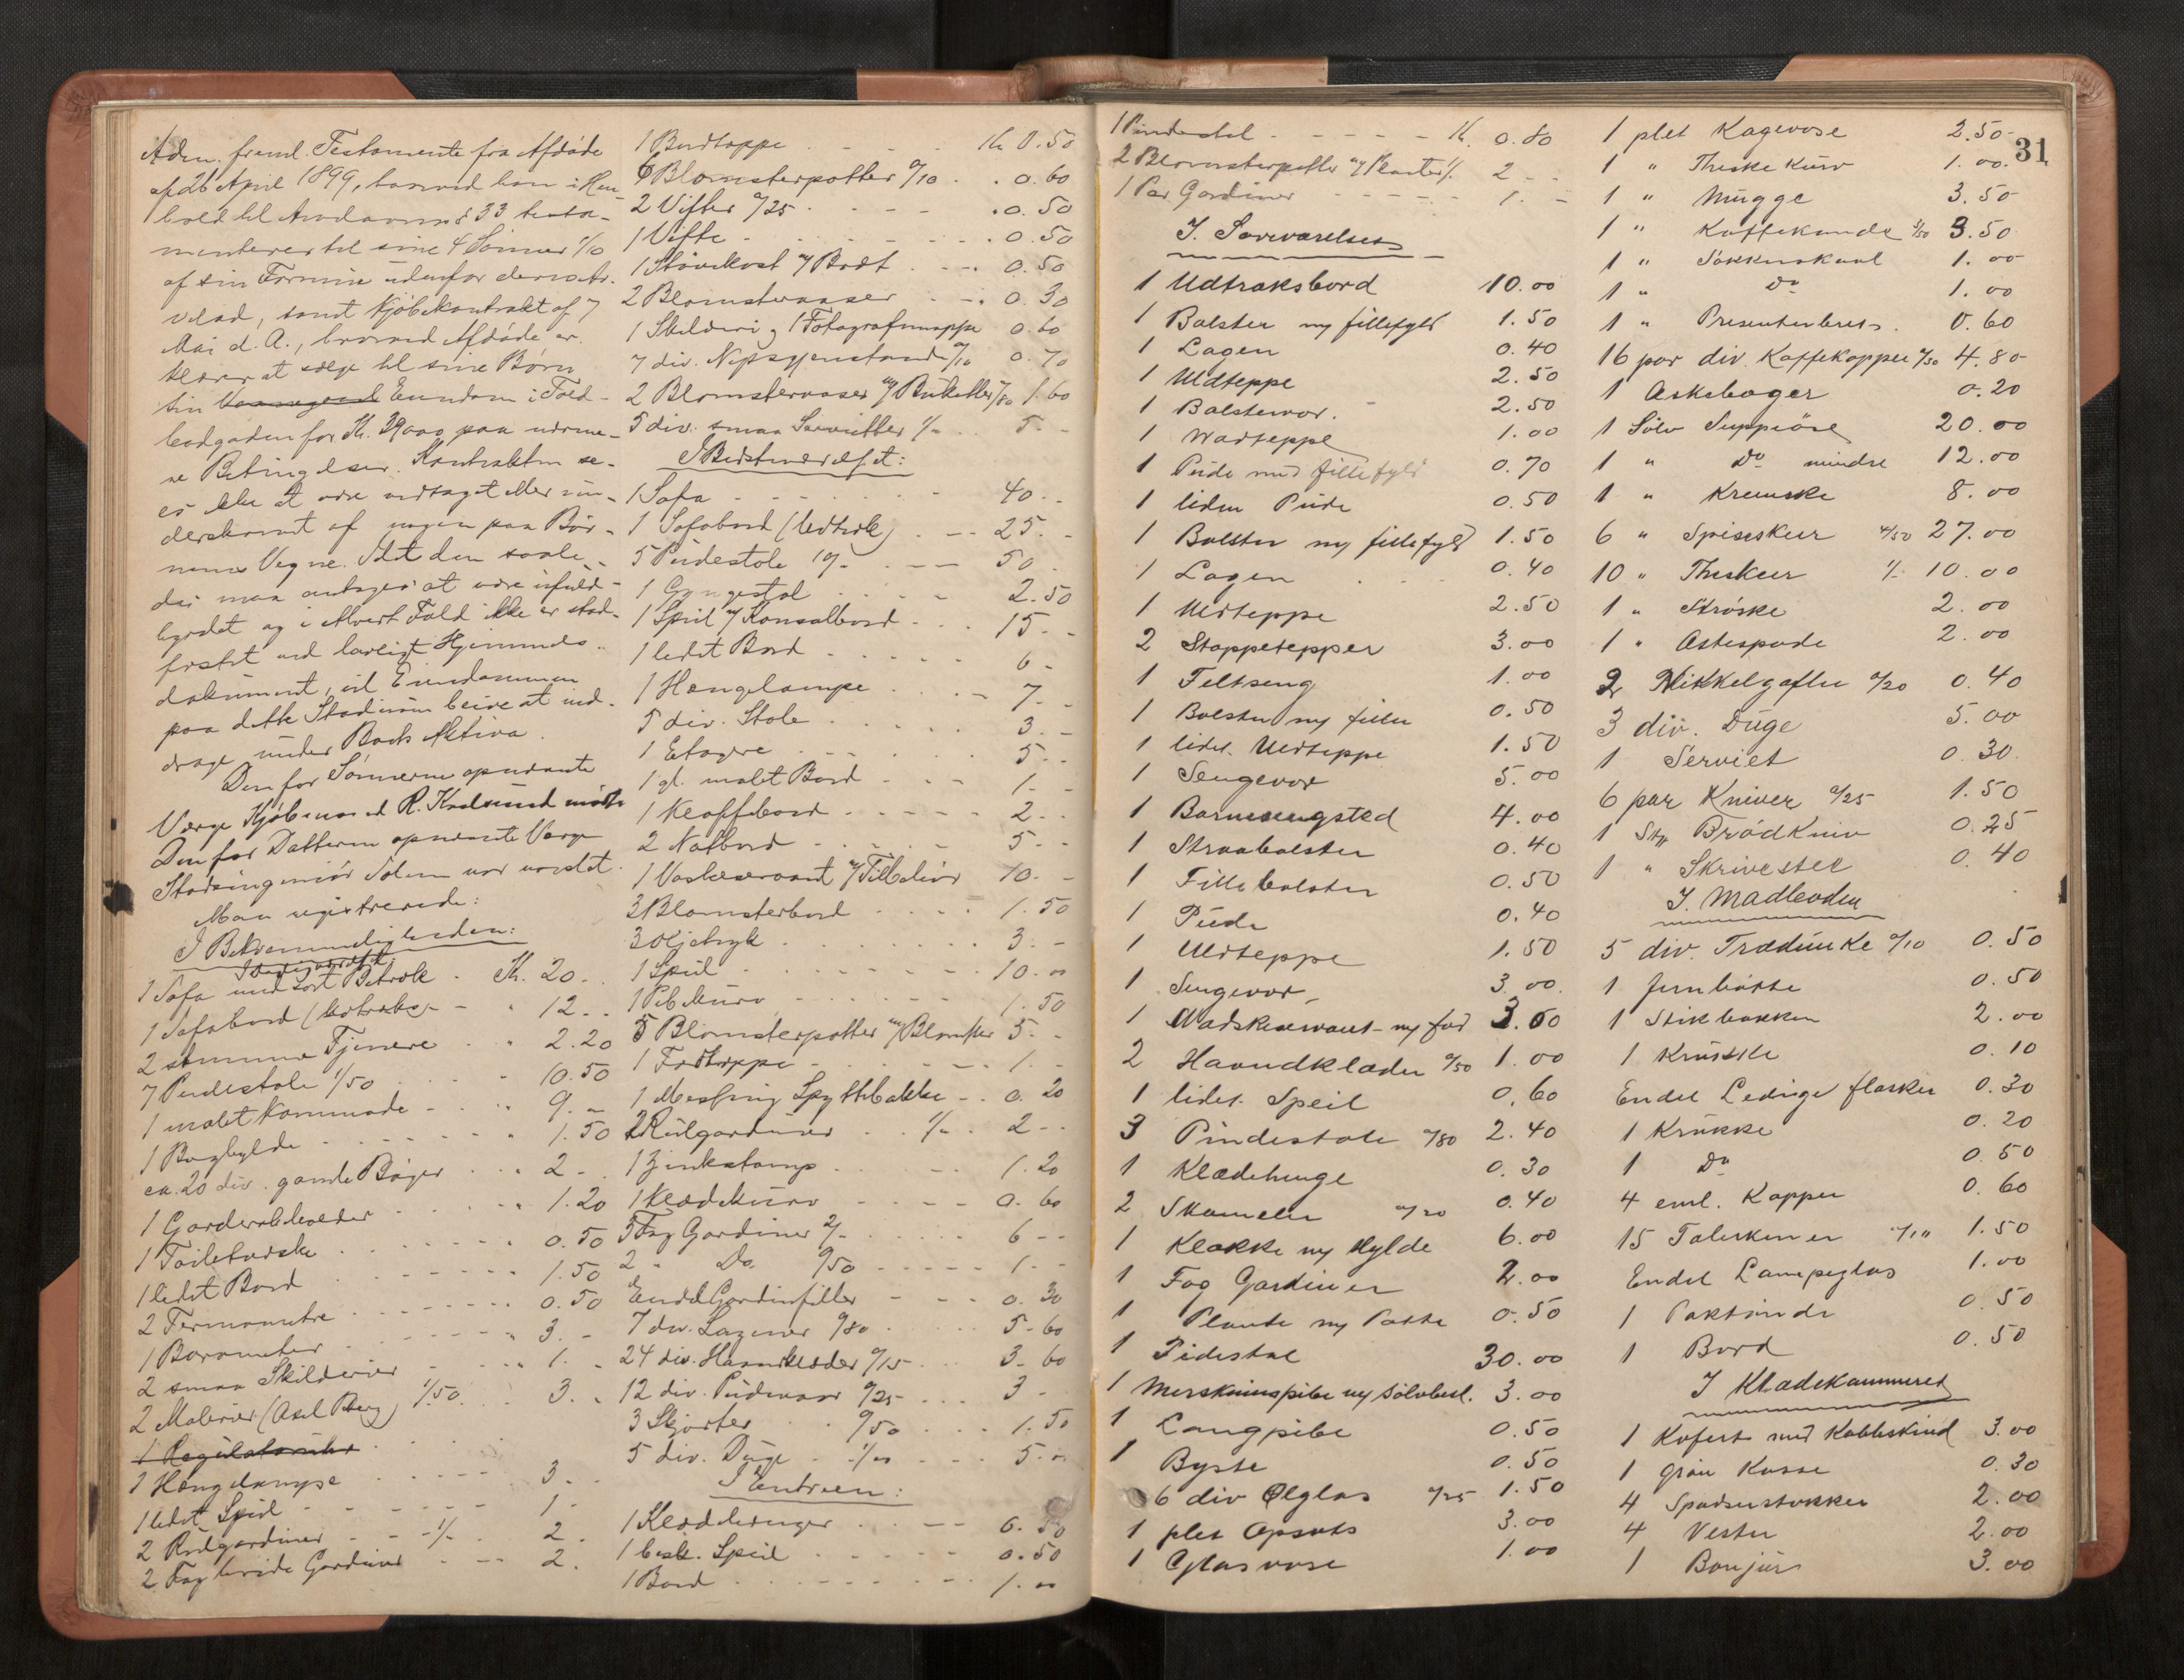 Adm. freml. Testamente fra Afdøde
af 26 April 1899, hvorved han i Hen-
hold til Arvelovens § 33 testa-
menterer til sine 4 Sønner 1/10
af sin Formue udenfor deres Ar-
velod, samt Kjøbekontrakt af 7
Mai d. A., hvorved Afdøde er-
klærer at sælge til sine Børn
sin Eiendom i Told-
bodgaden for Kr. 39000 paa nærme-
re Betingelser. Kontrakten se-
es ikke at være vedtaget eller un-
derskrevet af nogen paa Bør-
nenes Vegne. Idet den saale-
des maa antages at være ufuld-
byrdet og i alvert Fald ikke er stad-
fæstet ved lovligt Hjemmels-
dokument, vil Eiendommen
paa dette Stadium beive at ind-
drage under Boets Aktiva.
Den for Sønnerne opnævnte
Værge Kjøbmand R. mødte
Den for Datteren opnævnte Værge
Stadsingeniør Solem var varslet.
Man registrerede:
I Bekvemmeligheden:
I
1 Sofa med sort Betræk . Kr. 20.
1 Sofabord 12 . .
2 stumme Tjenere . " 2.20
7 Pudestole 1/50 . . 10.50
1 malet Kommode - . " 9. -
1 Boghylde " 1.50
ca. 20 div. gamle Bøger . . " 2 -
1 Garderobeholder . . " 1.20
1 Toiletæske . . 0.50
1 lidet Bord 1.50
2 Termometre 0.50
1 Barometer " 3. -
2 smaa Skilderier 1. -
2 Malerier (Axel Berg) 1/50 3. -
1 Regulatoruhr
1 Hængelampe 3. -
1 lidet Speil 1 -
2 Rulgardiner - - 1/- 2.
2 Fag hvide Gardiner 2.
1 Bordteppe . . . Kr 0.50
6 Blomsterpotter a/10 . . 0.60
2 Vifter a/25 . . 0.50
1 Vifte . . 0.50
1 Støvekost m/ Bræt . . 0.50
2 Blomstervaser . . 0.30
1 Skilderi og 1 Fotografimappe 0.60
7 div. Nipsgjenstande a/10 0.70
2 Blomstervaser m/ Buketter /80 1.60
5 div. smaa Servietter 1/- 5. -
1 Sofa 40 . .
1 Sofabord (Udtræk) . -- 25. -
5 Pudestole 10/- . -- 50 .
1 Gyngestol 2.50
1 Speil m/ Konsolbord . . 15. -
1 lidet Bord 6 -
1 Hængelampe 7 -
5 div. Stole 3. -
1 Etagere 5 - -
1 gl. malet Bord 1. -
1 Klaffebord 2. .
2 Natbord 5 - -
1 Vaskeservant m/ Tilbehør 10. -
3 Blomsterbord 1.50
3 Oljetryk 3. -
1 Speil 10. "
1 1.50
5 Blomsterpotter m/ Blomster 5. -
1 Fodteppe 1. -
1 Messing Spyttebakke - . 0.20
2 Rulgardiner . . 1/- . 2 - -
1 Zinkstamp 1.20
1 Klædekurv 0.60
3 Fag Gardiner 2/- 6 - -
2 " Do a/50 1. -
Endel Gardinfiller 0.30
7 div. Lagener a/80 5-60
24 div. Haandklæder a/15 3-60
12 div. Pudevaar a/25 3 -
3 Skjorter a/50 1.50
5 div. Duge 1/- 5. "
I Entreen:
1 Klædehænger 6.50
1 besk. Speil 0.50
1 Bord 1. "
1 Pindestol - - - Kr. 0.80
2 Blomsterpotter m/ Planter 1/. 2 - -
1 Par Gardiner 1. -
31
I. Soveværelset
1 Udtræksbord 10.00
1 Bolster m/ fillefyld 1.50
1 Lagen 0.40
1 Uldteppe 2.50
1 Bolstervor. 2.50
1 Watteppe 1.00
1 Pude med fillefyld 0.70
1 liden Pude 0.50
1 Bolster m/ fillefyld 1.50
1 Lagen 0.40
1 Uldteppe 2.50
2 Stoppetepper 3.00
1 Feltseng 1.00
1 Bolster m/ filler 0.50
1 lidet Uldteppe 1.50
1 Sengevor 5.00
1 Barnesengsted 4.00
1 Straabolster 0.40
1 Fillebolster 0.50
1 Pude 0.40
1 Uldteppe 1.50
1 Sengevor 3.00
1 Vadskeservant m/ fad 3.00
2 Haandklæder a/50 1.00
1 lidet Speil 0.60
3 Pindestole a/80 2.40
1 Klædehenge 0.30
2 Skameler a/20 0.40
1 Klokke m/ Hylde 6.00
1 Fag Gardiner 2.00
1 Plante m/ Potte 0.50
1 Pidestal 30.00
1 Merskumspibe m/ sølvbesl. 3.00
1 Langpibe 0.50
1 Byste 0.50
6 div Ølglas a/25 1.50
1 plet Opsats 3.00
1 Glasvase 1.00
1 plet Kagevase 2.50
1 " Theskekurv 1.00
1 " Mugge 3.50
1 " Kaffekande 3.50
1 " Sukkerskaal 1.00
1 " Do 1.00
1 " Presenterbret 0.60
16 par div. Kaffekopper a/30 4.80
1 Askebæger 0.20
1 Sølv Suppeøse 20.00
1 " Do mindre 12.00
1 " Kremske 8.00
6 " Spiseskeer 4/50 27.00
10 " Theskeer 1/- 10.00
1 " Strøske 2.00
1 " Ostespade 2.00
2 Nikkelgafler a/20 0.40
3 div. Duge 5.00
1 Serviet 0.30
6 par Kniver a/25 1.50
1 Stk Brødkniv 0.25
1 " Skrivestel 0.40
I. Madboden
5 div. Trædunke a/10 0.50
1 Jernbøtte 0.50
1 Stikbækken 2.00
1 Krukke 0.10
Endel Ledige flasker 0.30
1 Krukke 0.20
1 Do 0.50
4 eml. Kopper 0.60
15 Talerkener a/10 1.50
Endel Lampeglas 1.00
1 0.50
1 Bord 0.50
I Klædekammeret
1 Kofert med Kobbeskind 3.00
1 grøn Kasse 0.30
4 Spadserstokker 2.00
4 Vester 2.00
1 Bonjur 3.00